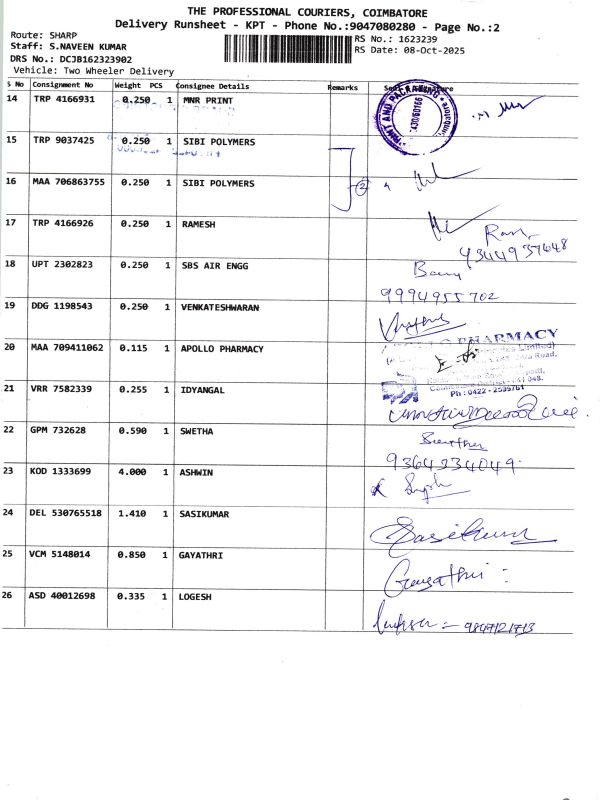 THE PROFESSIONAL COURIERS, COIMBATORE
Delivery Runsheet - KPT - Phone No.:9047080280 - Page No.:2
Route: SHARP
RS No.: 1623239
Staff: S.NAVEEN KUMAR
RS Date: 08-Oct-2025
DRS No.: DCJB162323902
Vehicle: Two Wheeler Delivery
S No Consignment No Weight PCS Consignee Details Remarks
14 TRP 4166931 0.250 1 MNR PRINT
15 TRP 9037425 0.250 1 SIBI POLYMERS
16 MAA 706863755 0.250 1 SIBI POLYMERS
2
17 TRP 4166926 0.250 1 RAMESH
9344937648
18 UPT 2302823 0.250 1 SBS AIR ENGG
9994955702
19 DDG 1198543 0.250 1 VENKATESHWARAN
20 MAA 709411062 0.115 1 APOLLO PHARMACY
PHARMACY
Ph : 0422 -
21 VRR 7582339 0.255 1 IDYANGAL
22 GPM 732628 0.590 1 SWETHA
9364234049
23 KOD 1333699 4.000 1 ASHWIN
24 DEL 530765518 1.410 1 SASIKUMAR
Sasikumar
25 VCM 5148014 0.850 1 GAYATHRI
Gayathri
26 ASD 40012698 0.335 1 LOGESH